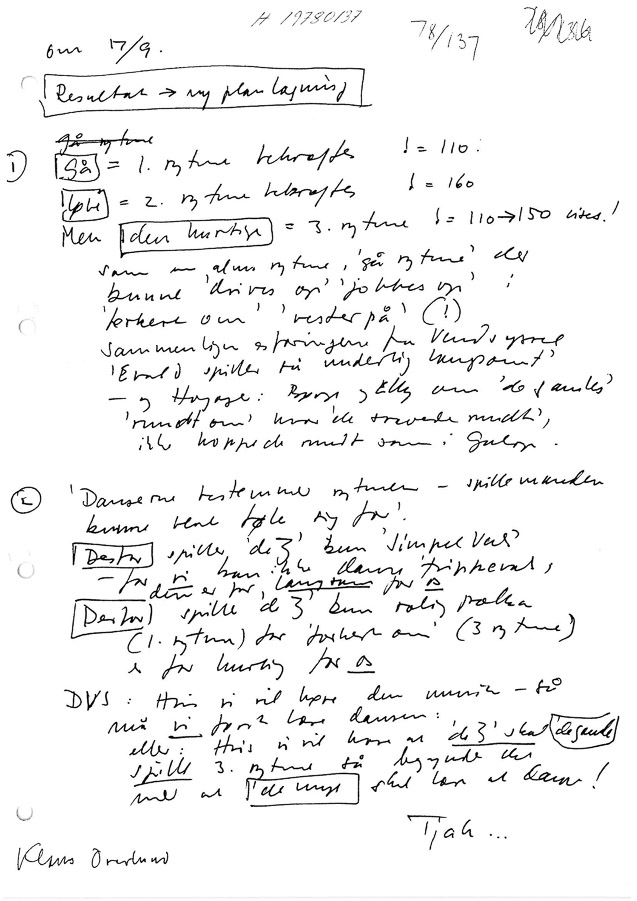 H 19780137
78/137
om 17/9.
Resultat → ny planlægning
gå rytme
1) Gå = 1. rytme bekræftes ♩ = 110
Løbe = 2. rytme bekræftes ♩ = 160
Men den hurtige = 3. rytme ♩ = 110→150 vises!
som en alm rytme, 'gå rytme' der
kunne 'drives op' 'jobbes op' i
'forkert om' 'vesterpå' (!)
Sammenlign erfaringerne fra Vendsyssel
'Evald spiller så underlig langsomt'
– og : og Elly om 'de gamles'
'rundt om' hvor 'de svævede rundt',
ikke hoppede rundt som i Galop.
2) 'Danserne bestemmer rytmen – spillemanden
kunne bare føle sig for'.
Derfor spiller 'de 3' kun 'Simpel Vals'
– for vi kan ikke danse 'trippevals',
den er for langsom for os
Derfor spiller de 3 kun rolig polka
(1. rytme) for 'forkert om' (3 rytme)
er for hurtig for os
DVS: Hvis vi vil høre den musik – så
må vi først lære dansen:
eller: Hvis vi vil have at 'de 3' skal 'de gamle'
spille 3. rytme så begynde der
med at 'de unge' skal lære at danse!
Tjah ...
Klaus